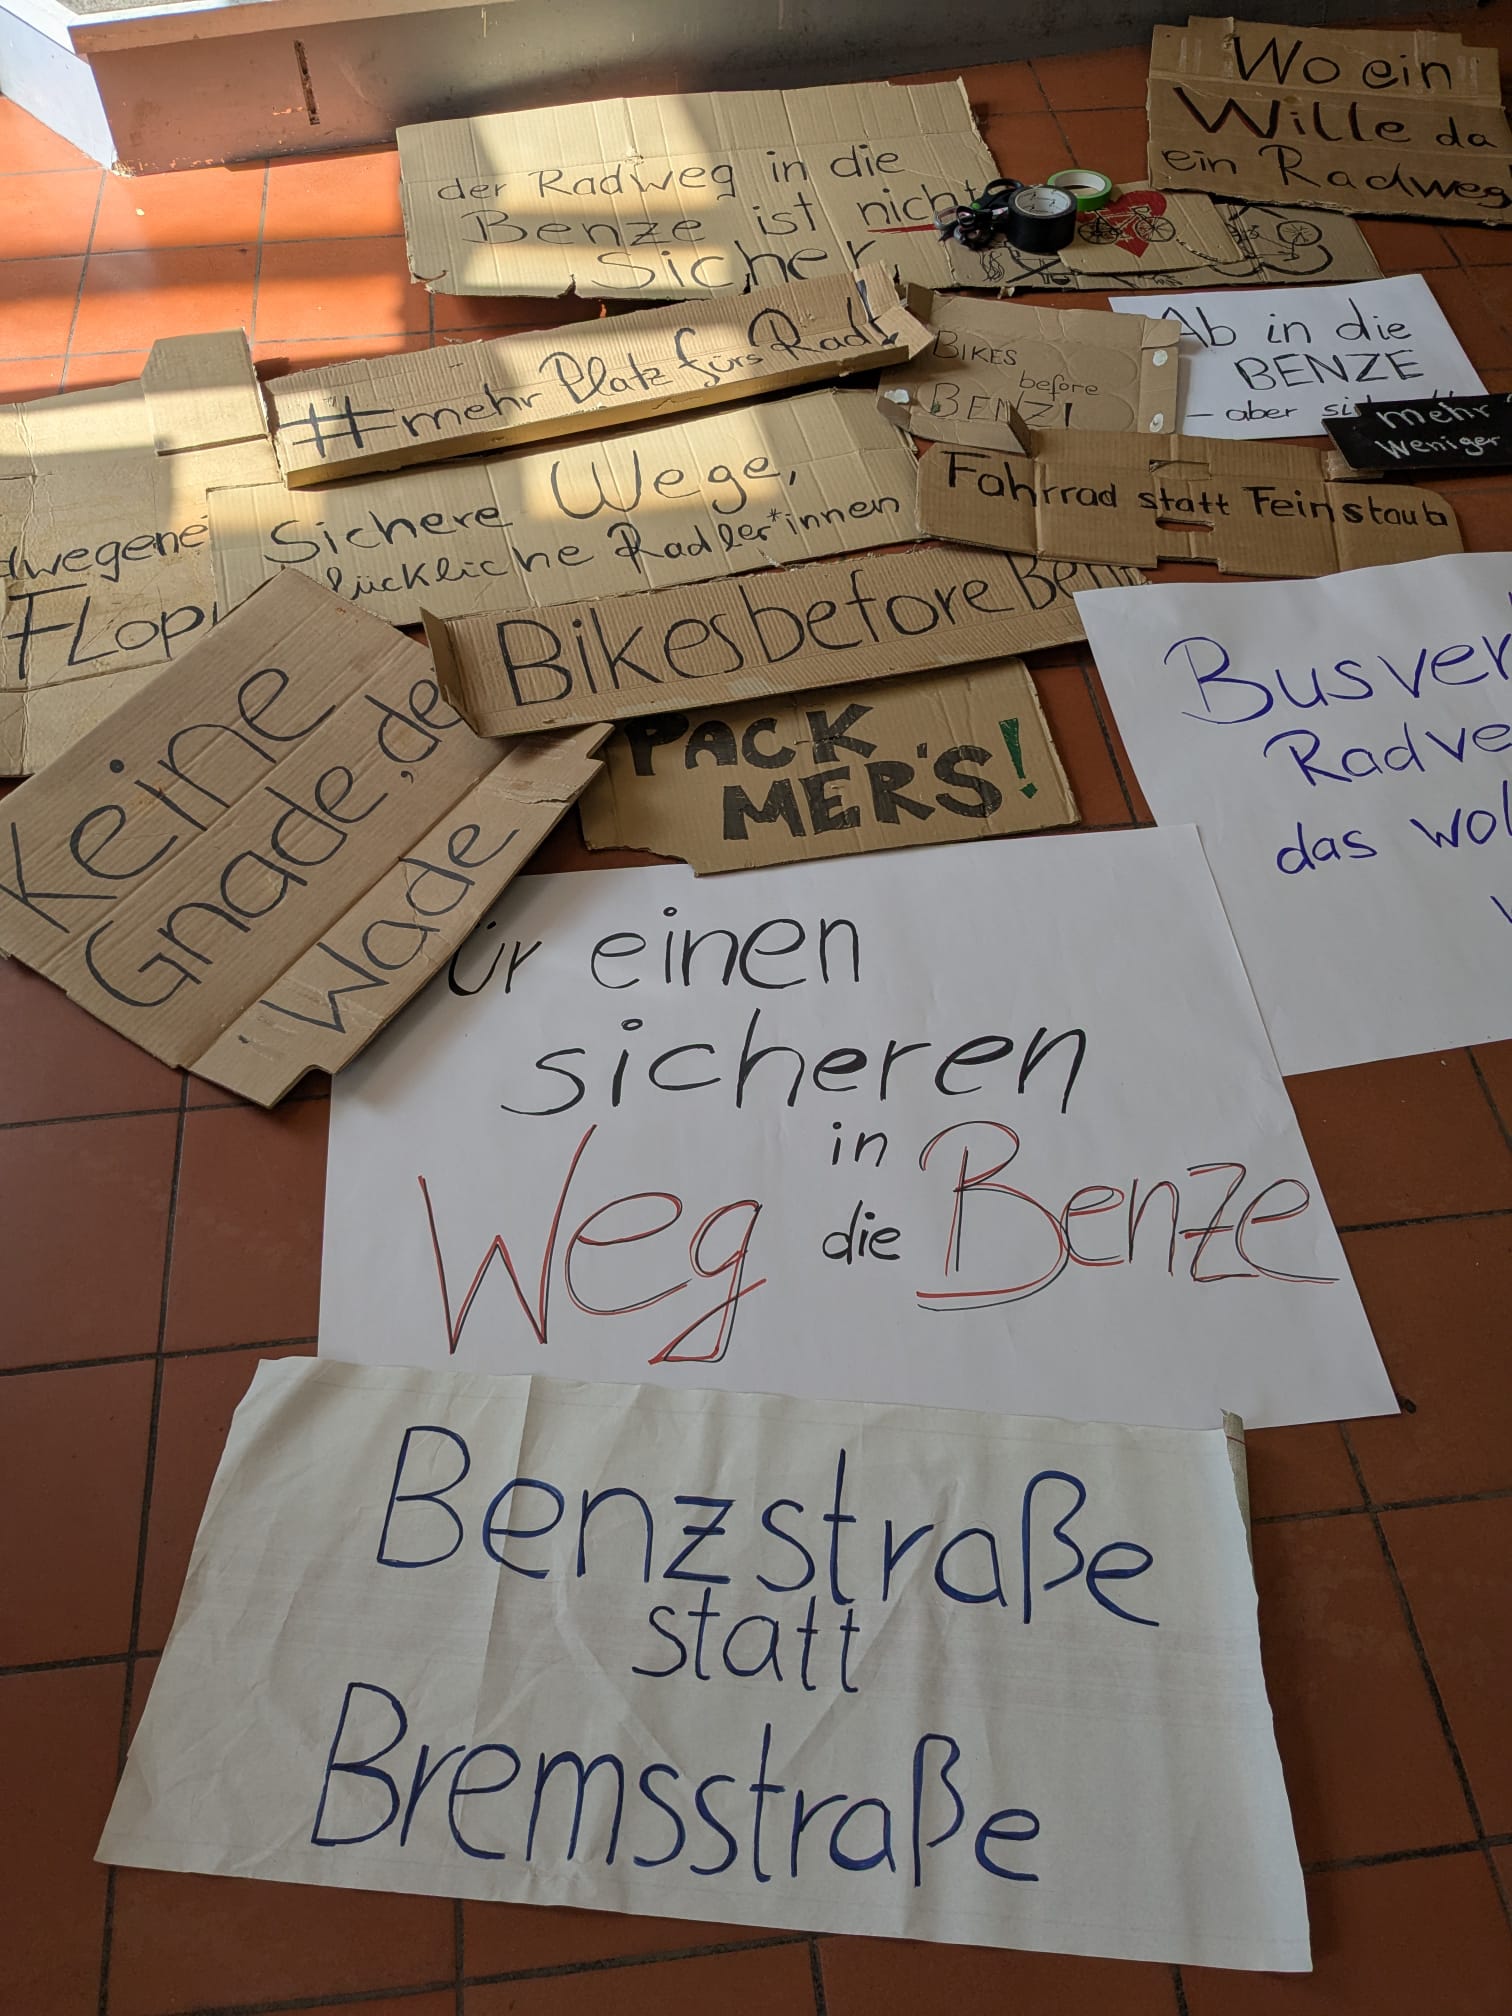 Wo ein
Wille da
ein Radweg
der Radweg in die
Benze ist nicht
sicher
#mehr Platz fürs Rad!
BIKES
before
BENZ!
Ab in die
BENZE
- aber
mehr
weniger
Sichere Wege,
Radler*innen
Fahrrad statt Feinstaub
FLOP
Bikesbefore
Keine
Gnade, de
Wade
PACK
MER'S!
Busver
Radve
das wol
ür einen
sicheren
Weg in die Benze
Benzstraße
statt
Bremsstraße